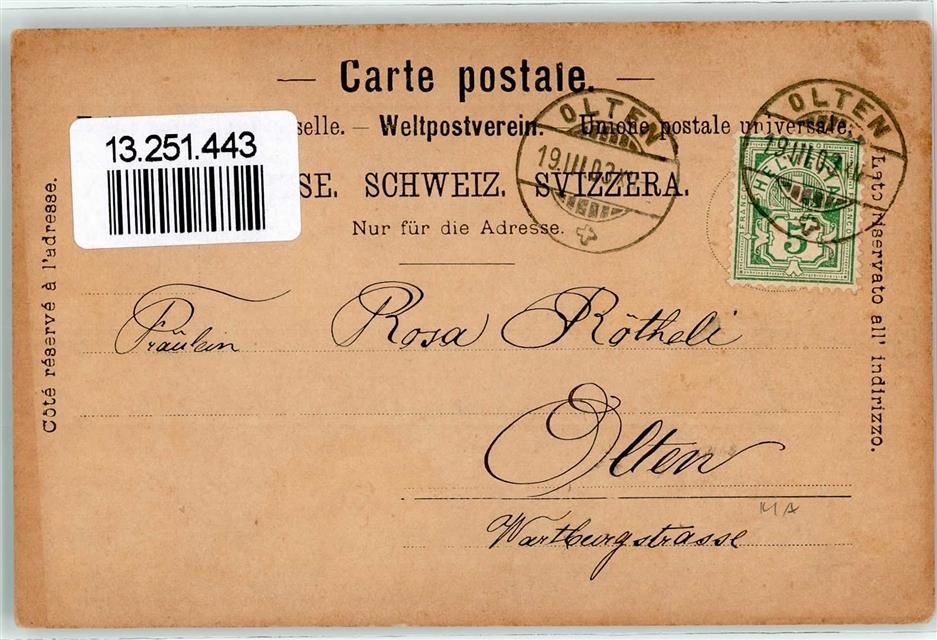 Carte postale.
selle. — Weltpostverein. — Unione postale universale.
13.251.443
SE. SCHWEIZ. SVIZZERA.
Nur für die Adresse.
OLTEN
19.III.03
OLTEN
19.III.03
HELVETIA
FRANCO
5
Côté réservé à l'adresse.
Lato riservato all' indirizzo.
Fräulein Rosa Rötheli
Olten
Wartburgstrasse